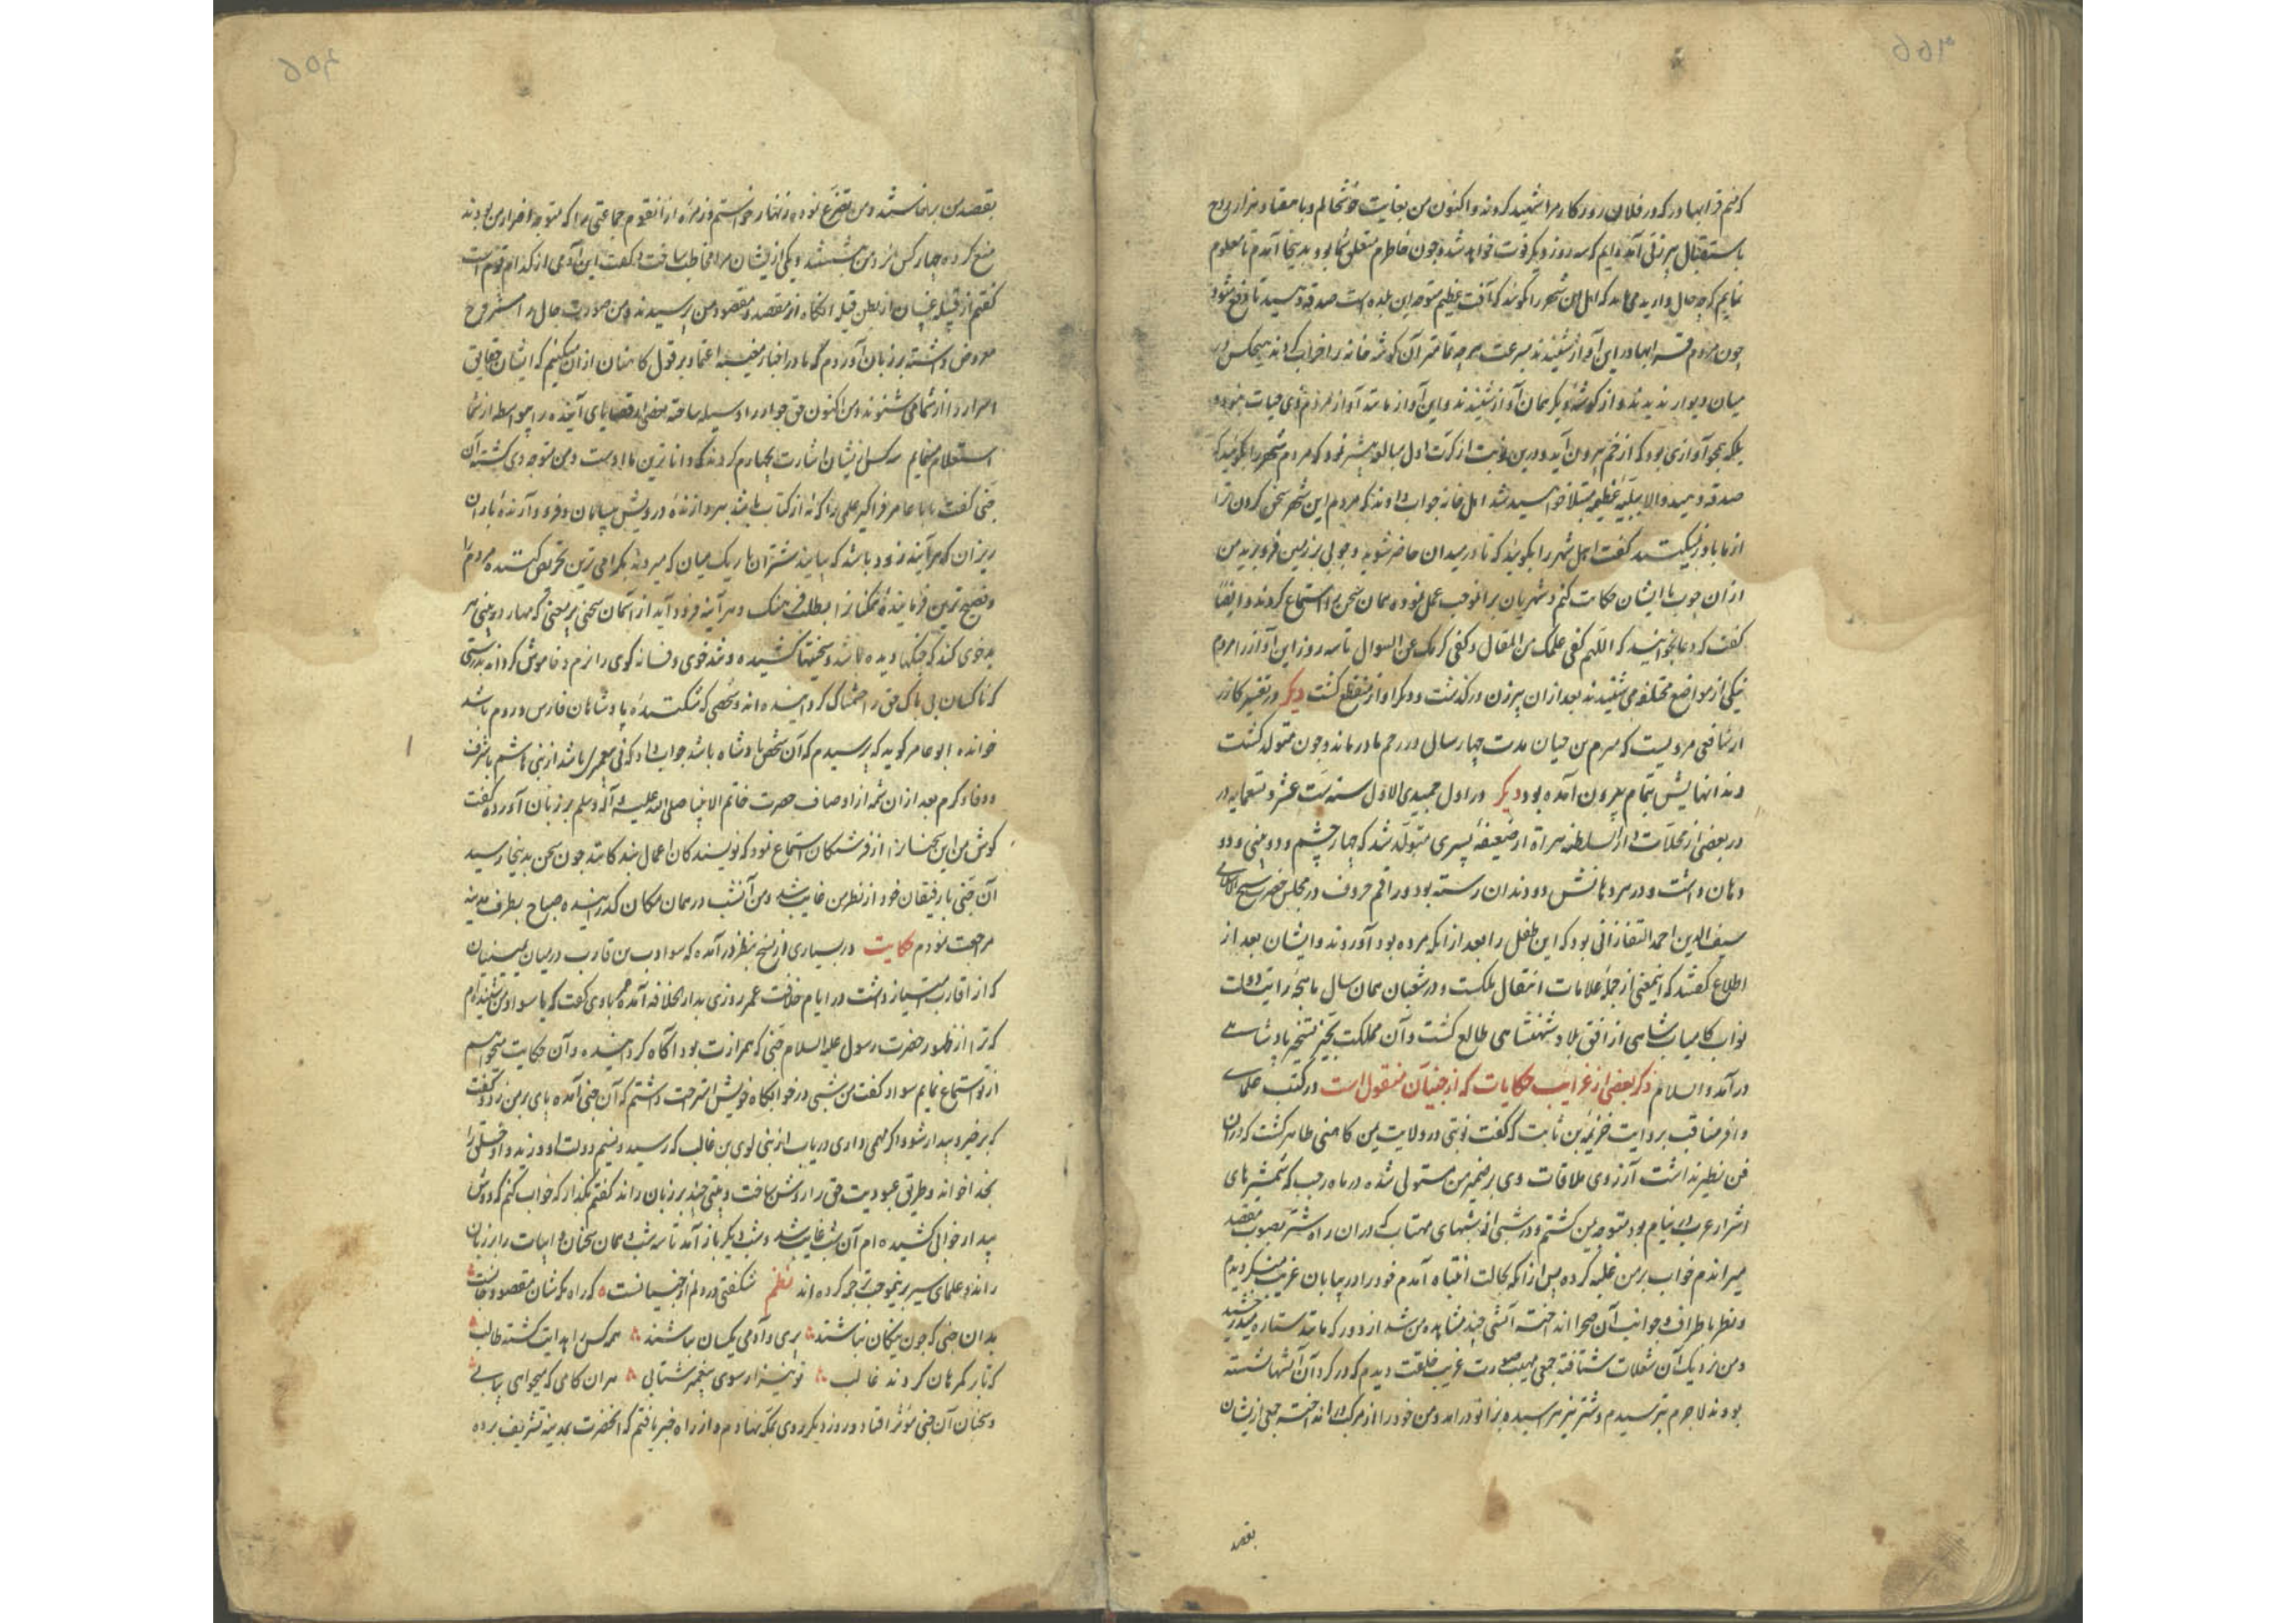 کنم قرابهادر که در فلان روز کار مرا شهید کردند و اکنون من بغایت خوشحالم و با هفتاد هزار روح
باستقبال پیرزنی آمده‌ایم که سه روز دیگر فوت خواهد شد و چون خاطرم متعلق شما بود بدینجا آمدم تا معلوم
نمایم که چه حال دارید می‌باید که اهل این شهر را گویند که آفت عظیم متوجه این بلده است صدقه دهید تا دفع شود
چون مردم قرابهادر این آواز شنیدند بسرعت هر چه تمامتر آن گوشه خانه را خراب کردند هیچکس در
میان دیوار ندیدند و از گوشه دیگر همان آواز شنیدند و این آواز مانند آواز مردم ذی حیات نبود
بلکه بنحو آوازی بود که از خم بیرون آید و درین نوبت از کرت اول مبالغه بیشتر نمود که مردم شهر را بگویند که
صدقه دهید والا ببلیه عظیمه مبتلا خواهید شد اهل خانه جواب دادند که مردم این شهر سخن کردن ترا
از ما باور نمیکنند گفت اهل شهر را بگویند که تا در میدان حاضر شوند و چوبی بر زمین فرو برید من
از آن چوب با ایشان حکایت کنم و شهریان برانموجب عمل نموده همان سخن را استماع کردند و ایضا
گفت که دعا بخوانید که اللهم کفی علمک عن المقال و کفی کرمک عن السوال تا سه روز این آواز را مردم
نیکی از مواضع مختلفه می‌شنیدند بعد از آن پیرزن در گذشت و دیگر آواز منقطع گشت دیگر در تفسیر کازر
از شافعی مرویست که هرم بن حیان مدت چهار سال در رحم مادر ماند و چون متولد گشت
دندانهایش بتمام بیرون آمده بود دیگر در اول جمیدی الاول سنه ست عشر و تسعمایه در
در بعضی از محلات دار السلطنه هراة از ضعیفه پسری متولد شد که چهار چشم و دو بینی و دو
دهان داشت و در هر دهانش دو دندان رسته بود و راقم حروف در مجلس حضرت شیخ الاسلامی
سیف الدین احمد التفتازانی بود که این طفل را بعد از آنکه مرده بود آوردند و ایشان بعد از
اطلاع گفتند که اینمعنی از جمله علامات انتقال ملکست و در شعبان همان سال ماهچه رایت دولت
نواب کامیاب شاهی از افق بلاد شهنشاهی طالع گشت و آن مملکت بحیز تسخیر پادشاهی
در آمد و السلام ذکر بعضی از غرایب حکایات که از جنیان منقولست در کتب علماء
وافر مناقب بروایت خزیمه بن ثابت که گفت نوبتی در ولایت یمن کاهنی ظاهر گشت که در آن
فن نظیر نداشت آرزوی ملاقات وی بر ضمیر من مستولی شده در ماه رجب که شمشیرهای
اشرار عرب در نیام بود متوجه یمن گشتم و در شبی از شبهای مهتاب که در آن راه شتر بصوب مقصد
میراندم خواب بر من غلبه کرده پس از آنکه بحالت انتباه آمدم خود را در بیابان غریب می‌دیدم
و نظر باطراف و جوانب آن صحرا انداخته آتشی چند مشاهده من شد از دور که مانند ستاره میدرخشید
و من نزدیک آن شعلات شتافته جمعی مهیب صورت غریب خلقت دیدم که در گرد آن آتشها نشسته
بودند لاجرم بترسیدم و شتر نیز ترسیده بزانو در آمد و من خود را از مرکب در انداخته جمعی از ایشان
بقصد
بقصد من برخاستند و من تضرع نموده زنهار خواستم و زمره از آن قوم جماعتی را که متوجه اضرار من بودند
منع کرده چهار کس نزد من نشستند و یکی از ایشان مرا مخاطب ساخت و گفت این آدمی از کدام قوم است
گفتم از قبیله غسان از بطن قیله آنگاه از مقصد و مقصود من پرسیدند و من صورت حال را مشروح
معروض داشته بر زبان آوردم که ما در اخبار مغیبه اعتماد بر قول کاهنان از آن میکنیم که ایشان حقایق
اسرار را از شما می‌شنوند و من اکنون حق جوار را وسیله ساخته بعضی از قضایای آینده را بیواسطه از شما
استعلام مینمایم سه کس از ایشان اشارت بچهارم کردند که داناترین ما اوست و من متوجه وی گشته آن
جنی گفت یا با عامر فرا گیر علمی را که نه از کتاب باشد بپردازنده درویش بیابان و فرود آرنده باران
ریزان که هر آینه زود باشد که بیایند شتران باریک میان که میروند بگرامی‌ترین تحریص کننده مردم را
و فصیح‌ترین فرماینده ممکنانرا بطلب فرهنگ و هر آینه فرود آید از آسمان سخنی پر معنی که مهار در بینی هر
بدخوی کند که جنگها دیده باشد و سختیها کشیده و تند خوی و فسانه گوی را نرم و خاموش گرداند بدرستی
که ناکسان بی باک حق را خشمناک گردانیده‌اند و شخصی که شکننده پادشاهان فارس و روم باشد
خوانده ابو عامر گوید که پرسیدم که آن شخص پادشاه باشد جواب داد که نی پیغمبر باشد از بنی هاشم با شرف
و وفا و کرم بعد از آن شمه از اوصاف حضرت خاتم الانبیا صلی الله علیه و آله و سلم بر زبان آورده گفت
گوش من این سخنانرا از فرشتگان استماع نمود که نویسندگان اعمال بندگانند چون سخن بدینجا رسید
آن جنی با رفیقان خود از نظر من غایب شد و من آنشب در همان مکان گذرانیده صباح بطرف مدینه
مراجعت نمودم حکایت در بسیاری از نسخ بنظر در آمده که سواد بن قارب در میان یمنیان
که از اقارب امتیاز داشت در ایام خلافت عمر روزی بدار الخلافه آمده عمر با وی گفت که یا سواد من شنیده‌ام
که ترا از ظهور حضرت رسول علیه السلام جنی که همرازت بود آگاه گردانیده و آن حکایت میخواهم
از تو استماع نمایم سواد گفت من شبی در خوابگاه خویش استراحت داشتم که آن جنی آمده پای بر من زد و گفت
که برخیز و بیدار شو و اگر فهمی داری دریاب از بنی لوی بن غالب که رسید و نسیم دولت او وزید و او خلق را
بخدا خواند و طریق عبودیت حق را روشن ساخت و بیتی چند بر زبان راند گفتم بگذار که خواب کنم که دوش
بیدار خوابی کشیده‌ام آن شب غایب شد و شب دیگر باز آمد تا سه شب همان سخنان و ابیات را بر زبان
راند و علمای سیر برینموجب ترجمه کرده‌اند نظم شگفتی در دلم از جنیانست که راه مکه‌شان مقصود جانست
بدان جنی که چون نیکان نباشند پری و آدمی یکسان نباشند همه کس را هدایت گشته طالب
که تا بر گمرهان گردند غالب تو نیز ار سوی پیغمبر شتابی هر آن کامی که میخواهی بیابی
و سخنان آن جنی مؤثر افتاد و روز دیگر روی بمکه نهادم و از راه خبر یافتم که آنحضرت بمدینه تشریف برده